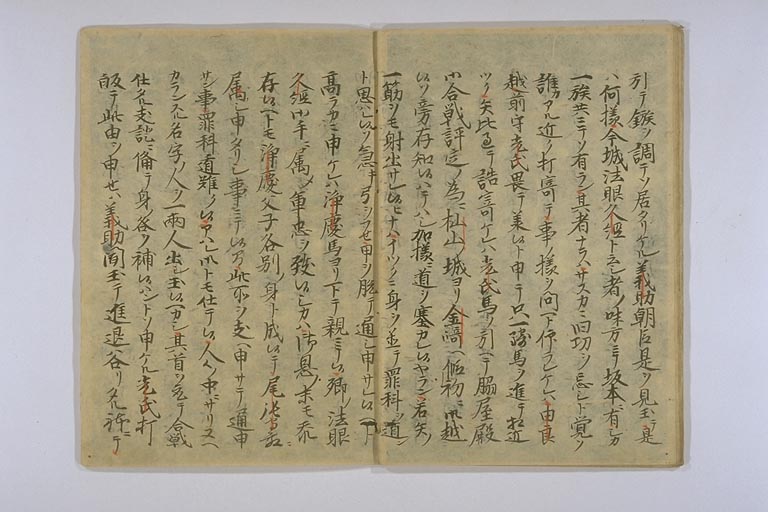 引テ鏃ヲ調テソ居タリケル義助朝臣是ヲ見玉テ是
ハ何様今城法眼久経ト云シ者ノ味方ニテ坂本ニ有シカ
一族共ニテソ有ラン其者ナラハサスカニ旧功ヲ忘レシト覚ソ
誰カアル近ク打寄テ事ノ様ヲ問ヘト仰ラレケレハ由良
越前守光氏畏テ承ハルト申テ只一騎馬ヲ進テ打近
ツク矢比ニテ詰寄ケレハ光氏馬ヲ引ヘテ脇屋殿
小合戦評定ノ為ニ杣山ノ城ヨリ金崎ヘ仮初ニ御越
ソ旁存知ハテハシ加様ニ道ヲ塞カレハヤラン若矢ヲ
一筋ソモ射出サレハナハイツクニ身ヲ並テ罪科ヲ遁ン
ト思ハレソ急キ弓ヲフセ甲ヲ脱テ通シ申サレヘト
高ラカニ申ケレハ浄慶馬ヨリ下テ親ニテ卿ノ法眼
久経御手ニ属シ軍忠ヲ致シカハ御恩ノ末モ忝
存ヘトモ浄慶父子各別ノ身ト成テ尾張守ニ
属シ申タリシ事ニテ間此所ヲ支ヘ申サテ通申
サン事罪科遁難クハヘハ小トモ仕テ人々ノ中ニサリヌヘ
カランスル名字ノ人ヲ一両人出シ玉ハカシ其首ヲ取テ合戦
仕タル支証ニ備テ身咎ヲ補ハントソ申ケル光氏打
帰テ此由ヲ申セハ義助聞玉テ進退谷リタル体ニテ